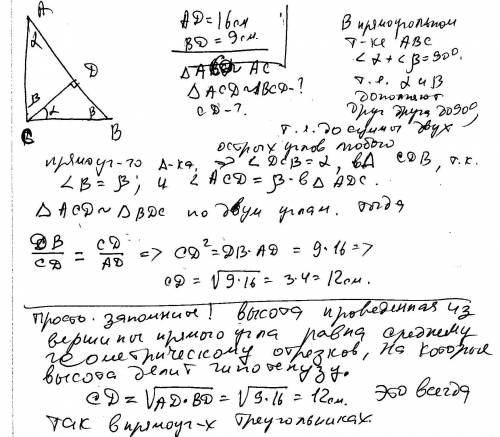 A
α
D
β
α
β
C
B
AD = 16 см
BD = 9 см.
△ACD ~ △BCD - ?
CD - ?
В прямоугольном
т-ке ABC
∠α + ∠β = 90°.
т.е. α и β
дополняют
друг друга до 90°,
т.е. до суммы двух
острых углов любого
прямоуг-го Δ-ка, => ∠DCB = α, в Δ CDB, т.к.
∠B = β; и ∠ACD = β - в Δ ADC.
△ACD ~ △BDC по двум углам. Тогда
DB/CD = CD/AD => CD² = DB·AD = 9·16 =>
CD = √9·16 = 3·4 = 12см.
Просто запомните! высота проведенная из
вершины прямого угла равна среднему
геометрическому отрезков, на которые
высота делит гипотенузу.
CD = √AD·BD = √9·16 = 12см. Это всегда
так в прямоуг-х треугольниках.